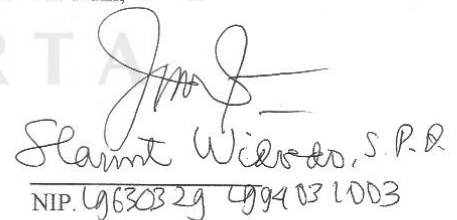 R T A
Slamet Widodo, S.P.d
NIP. 19630329 199403 1003